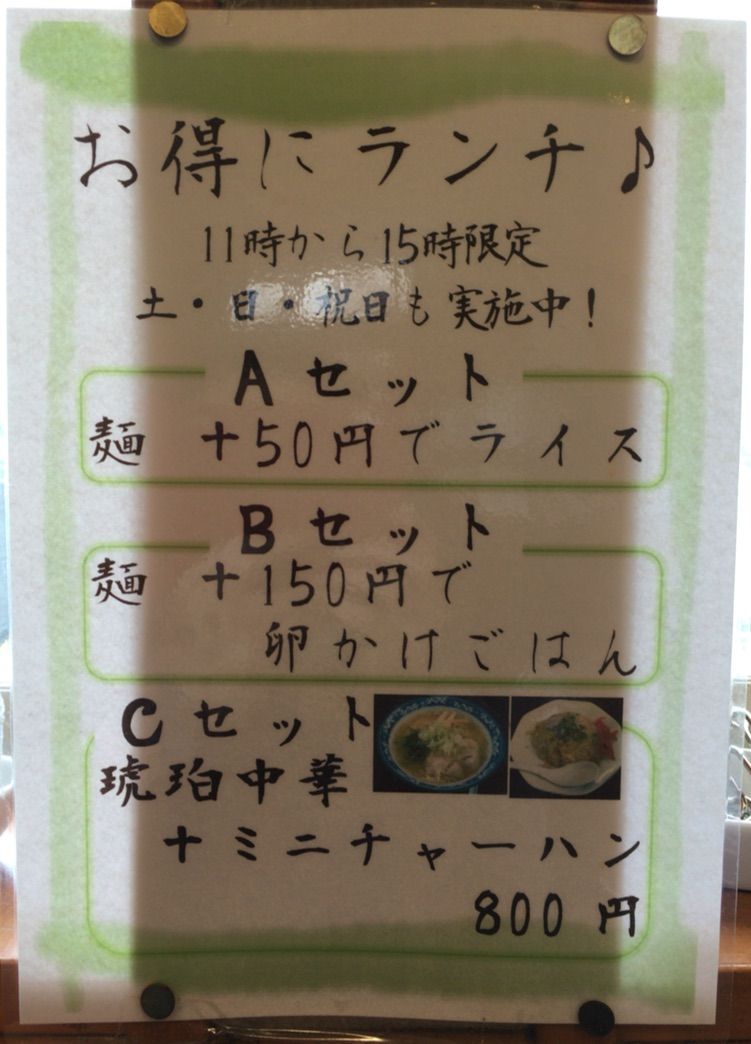 お得にランチ♪
11時から15時限定
土・日・祝日も実施中!
Aセット
麺 +50円でライス
Bセット
麺 +150円で
卵かけごはん
Cセット
琥珀中華
+ミニチャーハン
800円